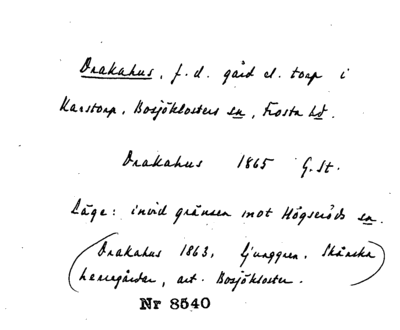 Drakahus, f. d. gård el. torp i
Karstorp, Bosjöklosters sn, Frosta hd.
Drakahus 1865 G. St.
Läge: invid gränsen mot Högseröds sn.
(Drakahus 1863, Ljunggren. Skånska
herregårdar, art. Bosjökloster.)
Nr 8540